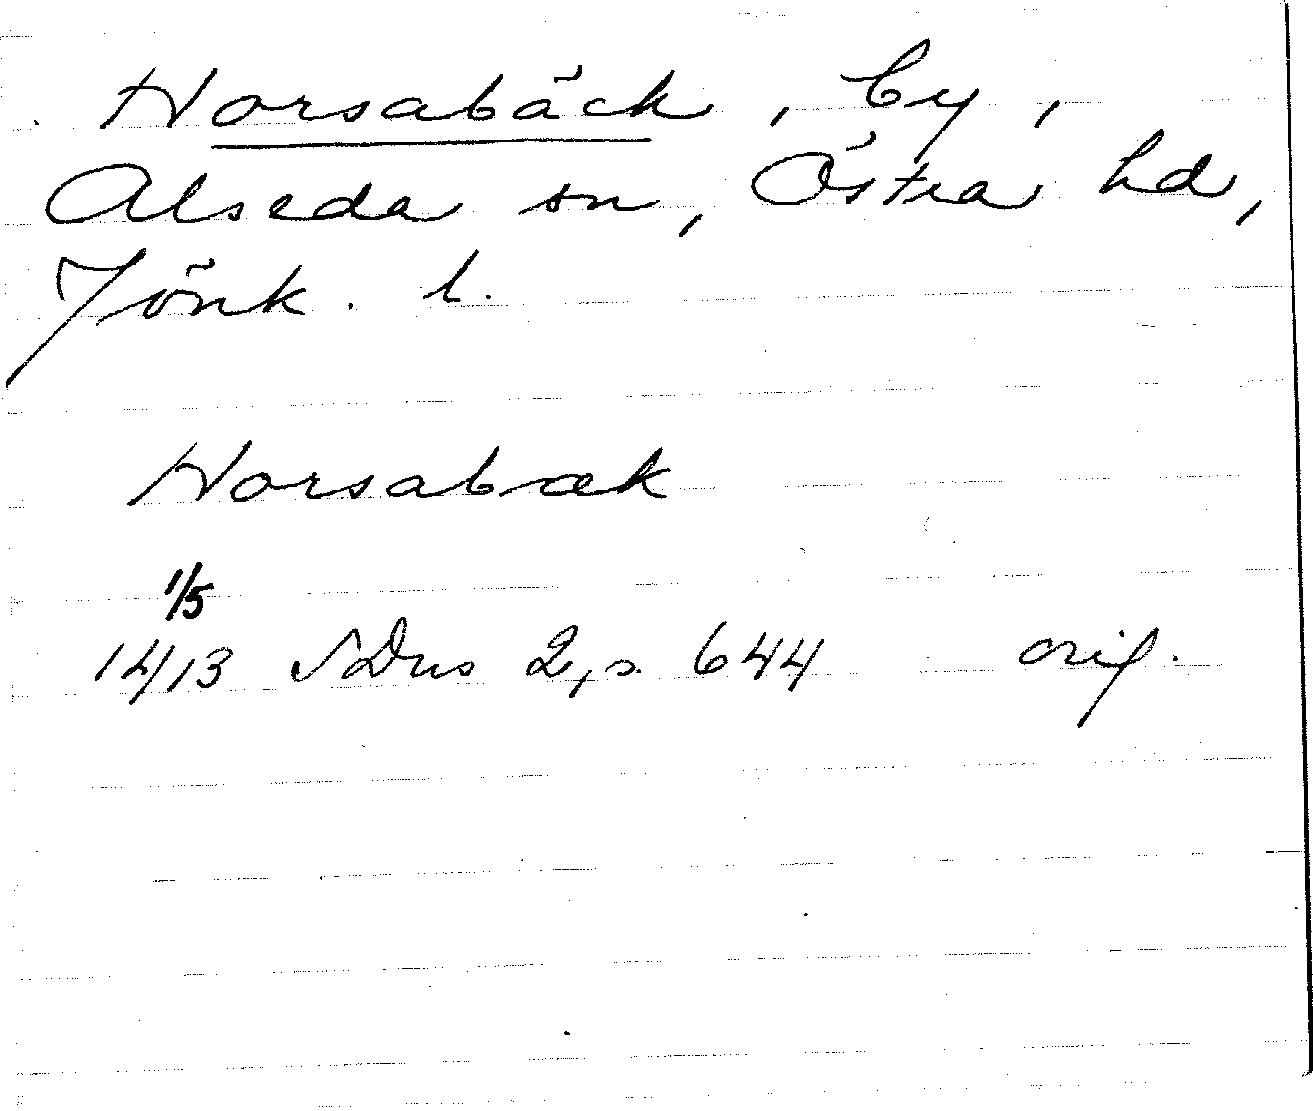 Horsabäck, by,
Alseda sn, Östra hd,
Jönk. l.
Horsabæk
1/5
1413 SDns 2, s. 644 orig.